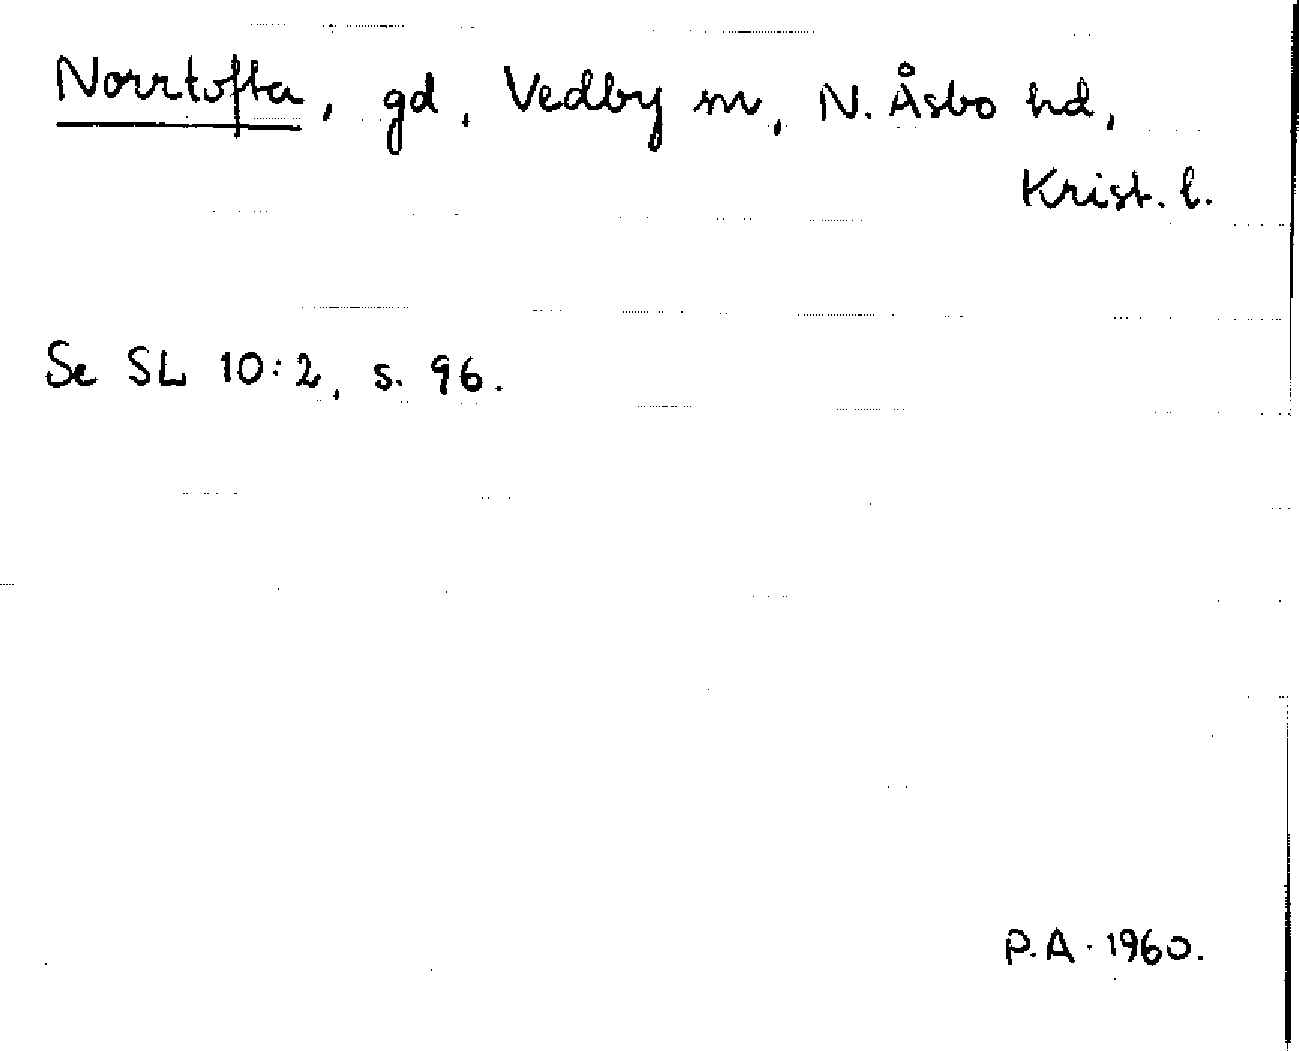 Norrtofta, gd, Vedby sn, N. Åsbo hd,
Krist. l.
Se SL 10:2, s. 96.
P.A. 1960.